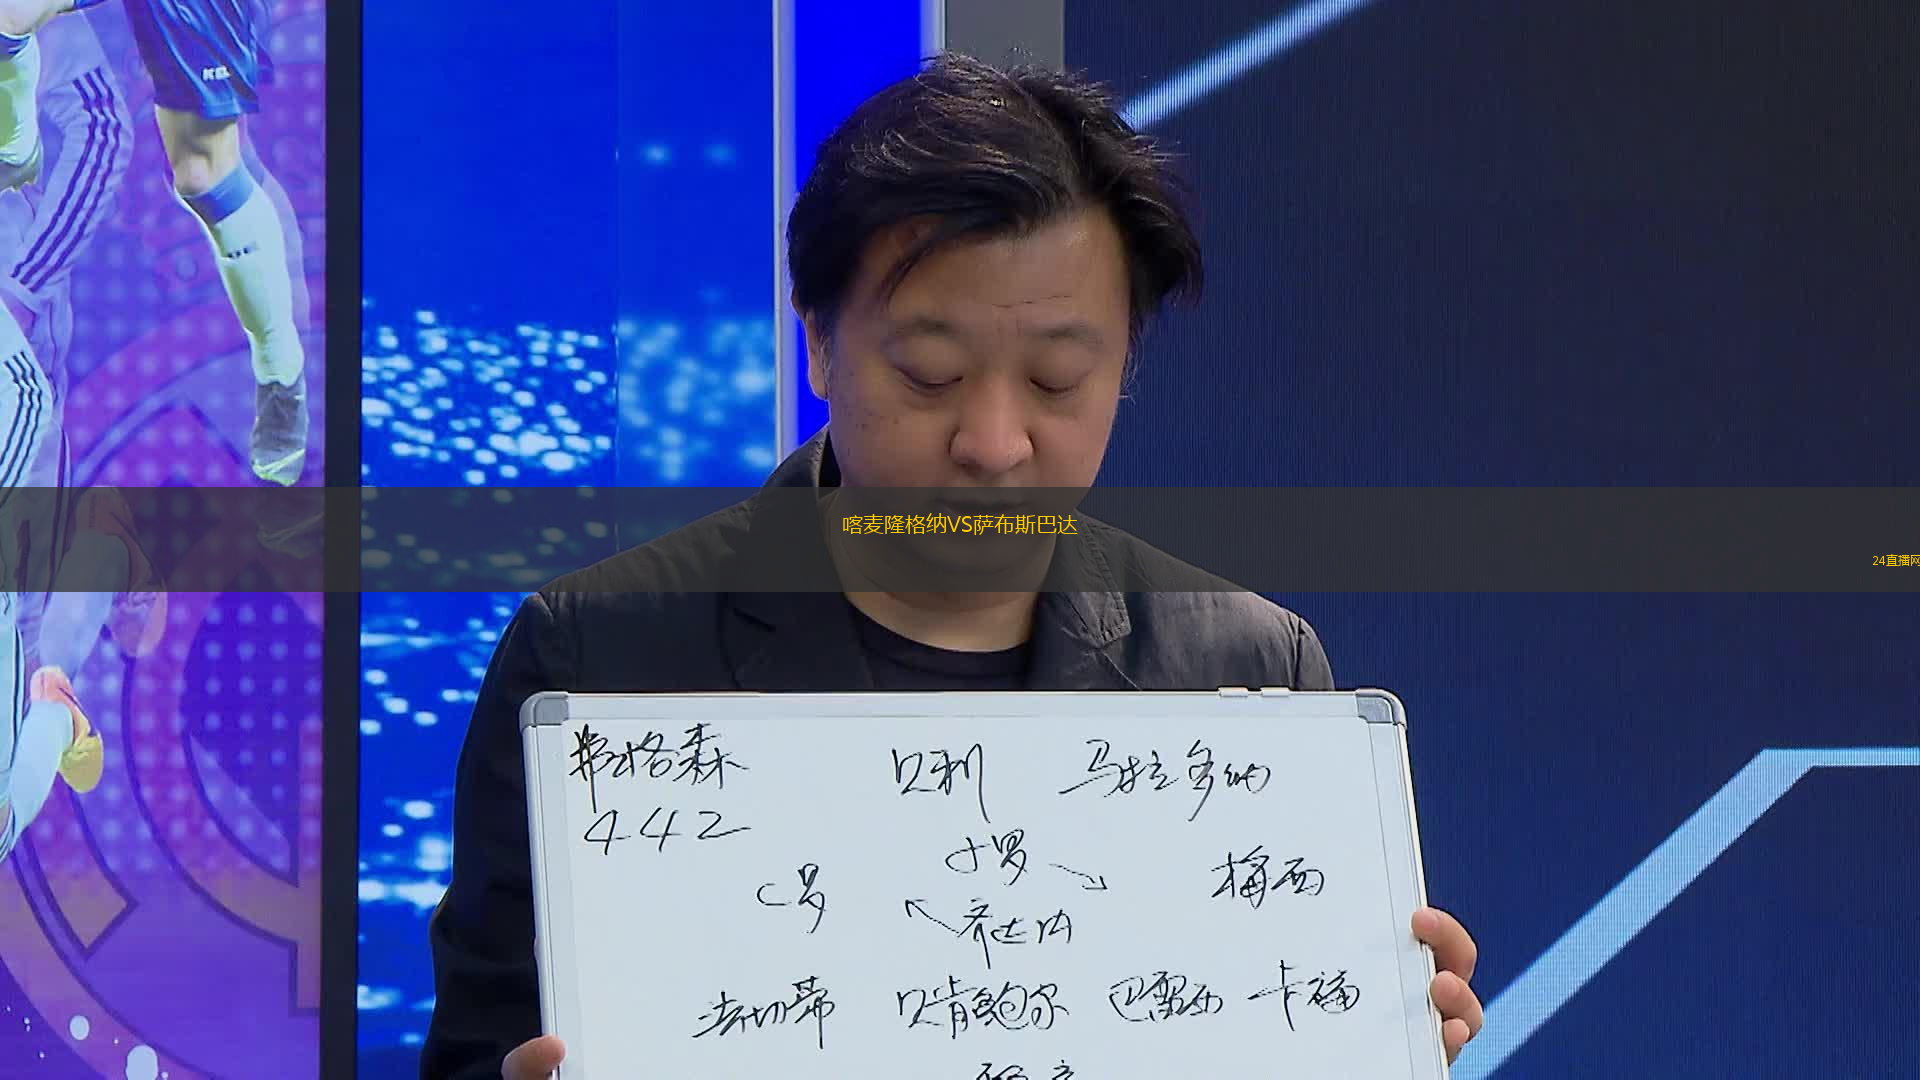 喀麦隆格纳VS萨布斯巴达
24直播网
弗格森 贝利 马拉多纳
442
小罗
C罗 梅西
齐达内
法切蒂 贝肯鲍尔 巴雷西 卡福